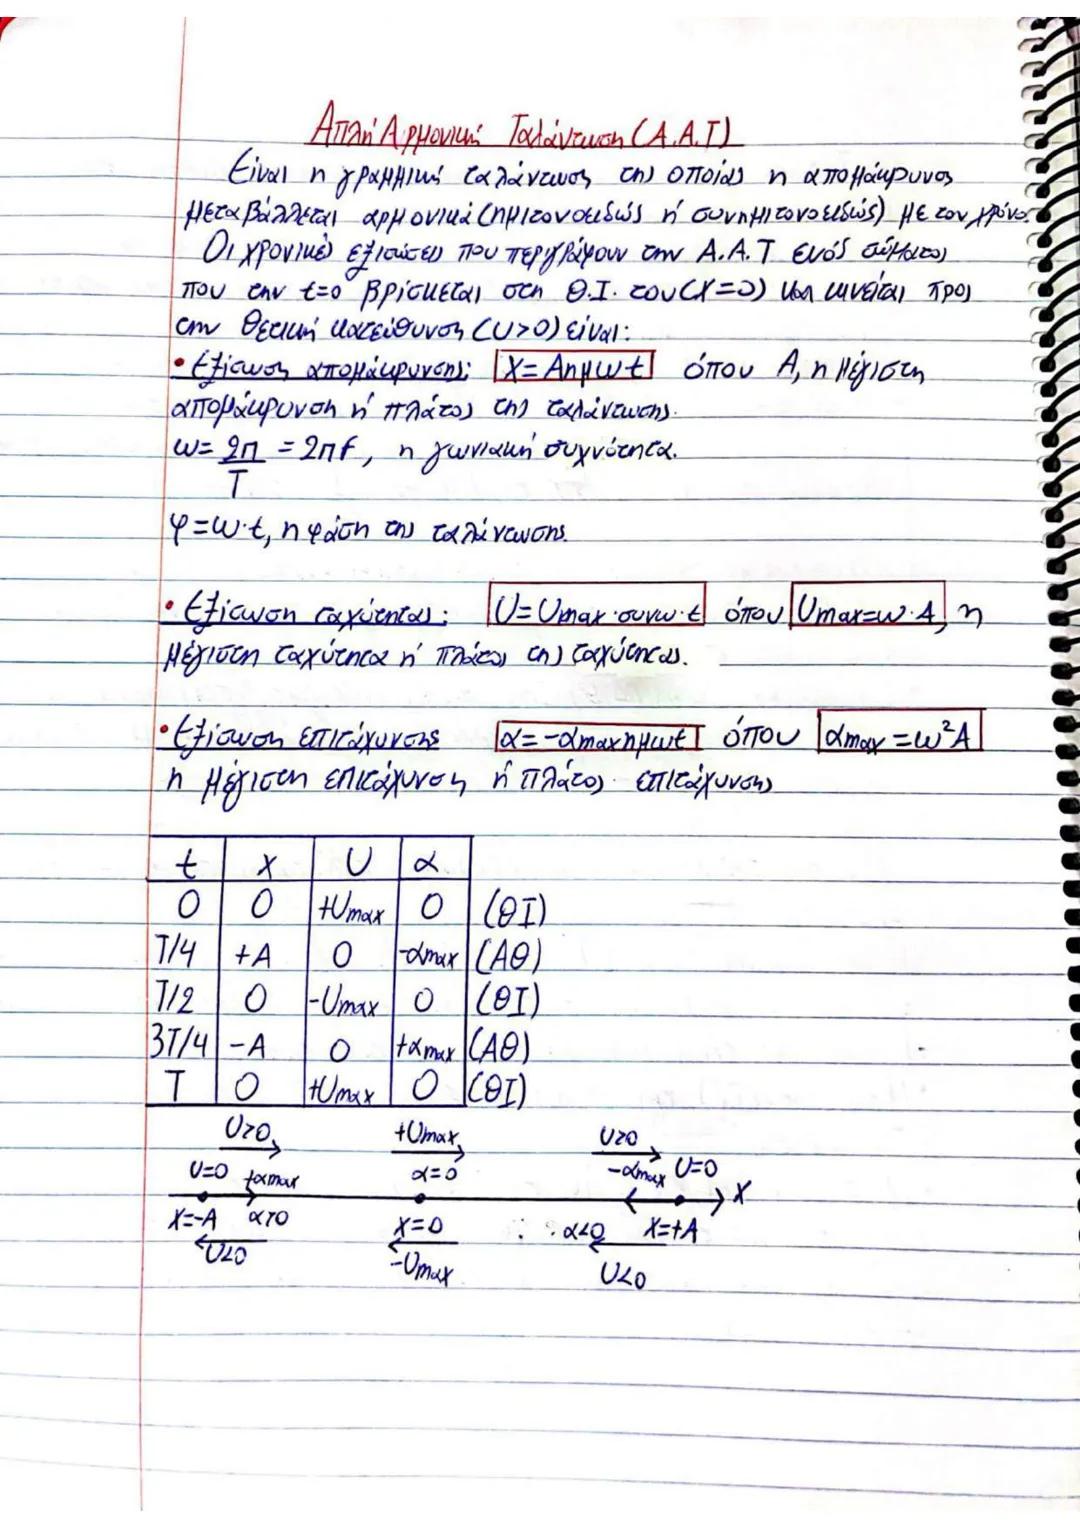 Απλή Αρμονική Ταλάντωση (Α.Α.Τ)
Είναι η γραμμική ταλάντωση της οποίας η απομάκρυνση
μεταβάλλεται αρμονικά (ημιτονοειδώς ή συνημιτονοειδώς) με τον χρόνο.
Οι χρονικές εξισώσεις που περιγράφουν την Α.Α.Τ ενός σώματος
που την t=0 βρίσκεται στη Θ.Ι. του (x=0) και κινείται προς
την θετική κατεύθυνση (υ>0) είναι:
• Εξίσωση απομάκρυνσης: x=Αημωt όπου Α, η μέγιστη
απομάκρυνση ή πλάτος της ταλάντωσης.
ω= 2π/Τ = 2πf, η γωνιακή συχνότητα.
φ=ω·t, η φάση της ταλάντωσης.
• Εξίσωση ταχύτητας: υ=υmax·συνω·t όπου υmax=ω·Α, η
μέγιστη ταχύτητα ή πλάτος της ταχύτητας.
• Εξίσωση επιτάχυνσης α=-αmaxημωt όπου αmax=ω²Α
η μέγιστη επιτάχυνση ή πλάτος επιτάχυνσης
t x υ α
0 0 +υmax 0 (ΘΙ)
T/4 +A 0 -αmax (ΑΘ)
T/2 0 -υmax 0 (ΘΙ)
3T/4 -A 0 +αmax (ΑΘ)
T 0 +υmax 0 (ΘΙ)
υ>0 +υmax υ>0
υ=0 +αmax α=0 -αmax υ=0
x
x=-A α>0 x=0 α<0 x=+A
υ<0 -υmax υ<0